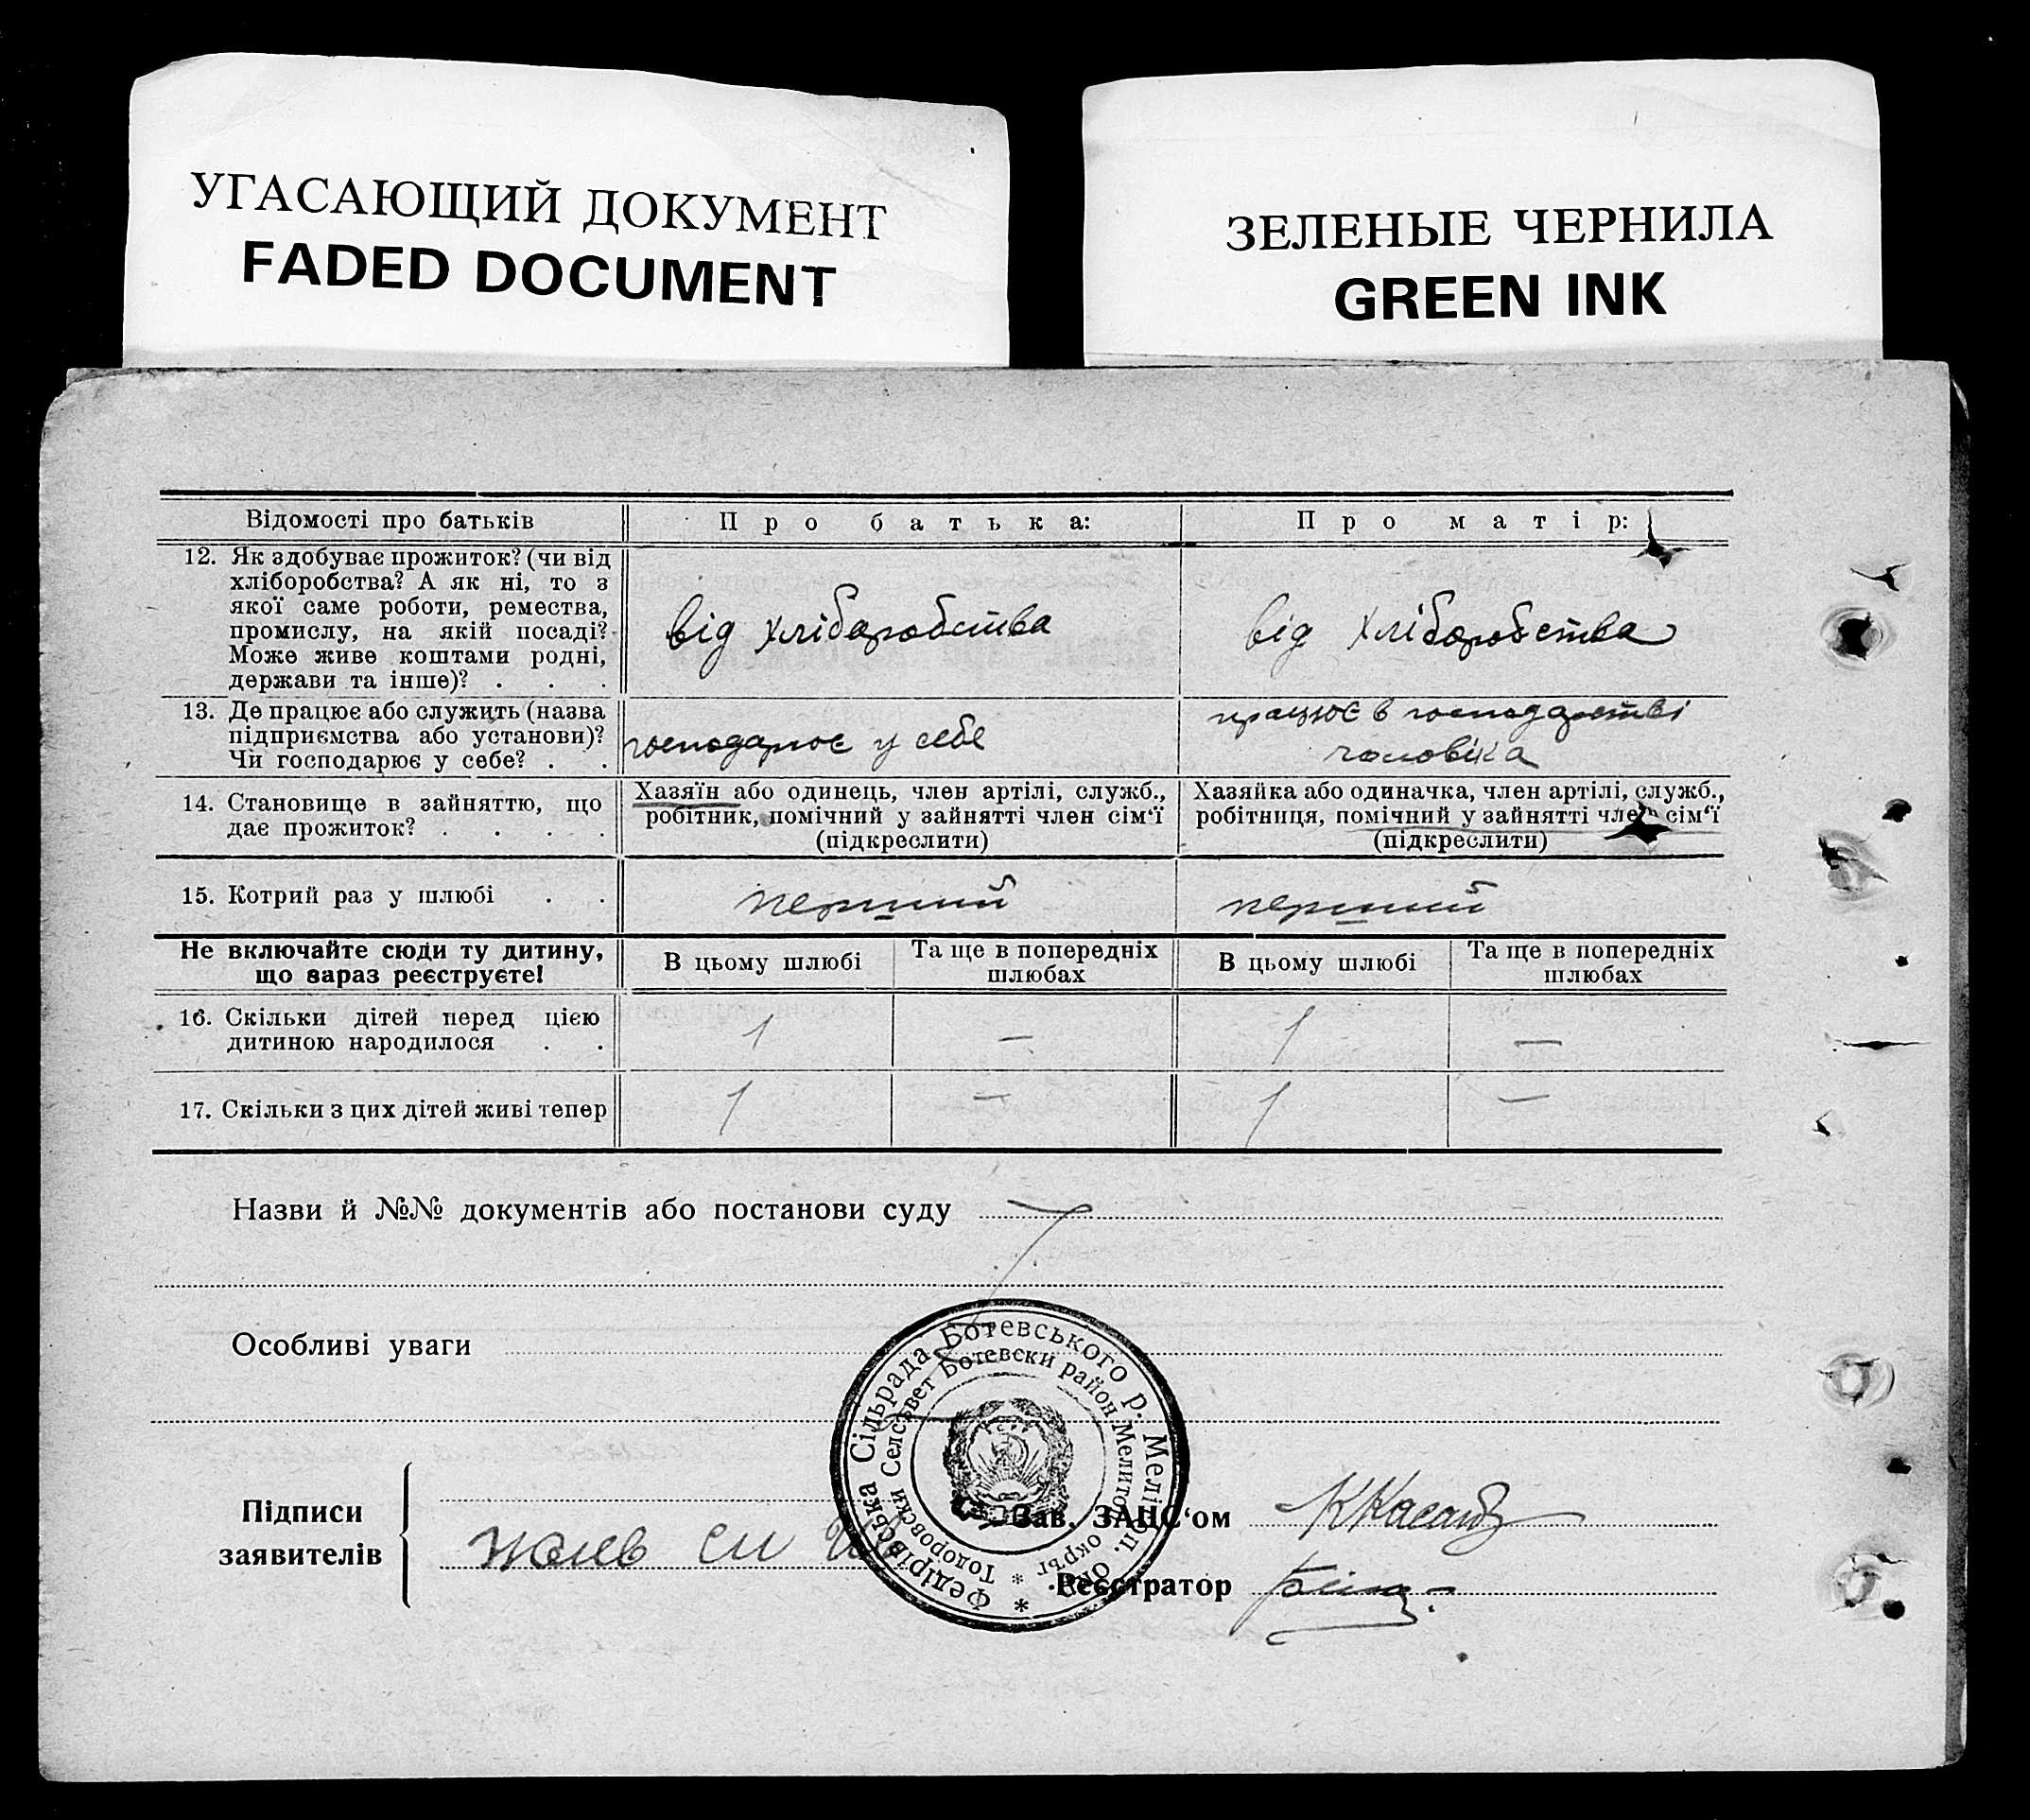 УГАСАЮЩИЙ ДОКУМЕНТ
FADED DOCUMENT
ЗЕЛЕНЫЕ ЧЕРНИЛА
GREEN INK
Відомості про батьків
Про батька:
Про матір:
12. Як здобуває прожиток? (чи від
хліборобства? А як ні, то з
якої саме роботи, ремества,
промислу, на якій посаді?
Може живе коштами родні,
держави та інше)? . . .
від хліборобства
від хліборобства
13. Де працює або служить (назва
підприємства або установи)?
Чи господарює у себе? . .
господарює у себе
працює в господарстві
чоловіка
14. Становище в зайняттю, що
дає прожиток? . . . .
Хазяїн або одинець, член артілі, служб.,
робітник, помічний у зайнятті член сім'ї
(підкреслити)
Хазяйка або одиначка, член артілі, служб.,
робітниця, помічний у зайнятті член сім'ї
(підкреслити)
15. Котрий раз у шлюбі . .
перший
перший
Не включайте сюди ту дитину,
що зараз реєструєте!
В цьому шлюбі
Та ще в попередніх
шлюбах
В цьому шлюбі
Та ще в попередніх
шлюбах
16. Скільки дітей перед цією
дитиною народилося . .
1 — 1 —
17. Скільки з цих дітей живі тепер
1 — 1 —
Назви й №№ документів або постанови суду
Особливі уваги
Федірівська Сільрада Ботевського р. Меліт оп. окр. *
Тодоровски Селсъвет Ботевски район Мелитоп. окръг *
Підписи
заявителів
Зав. ЗАГС'ом
Реєстратор